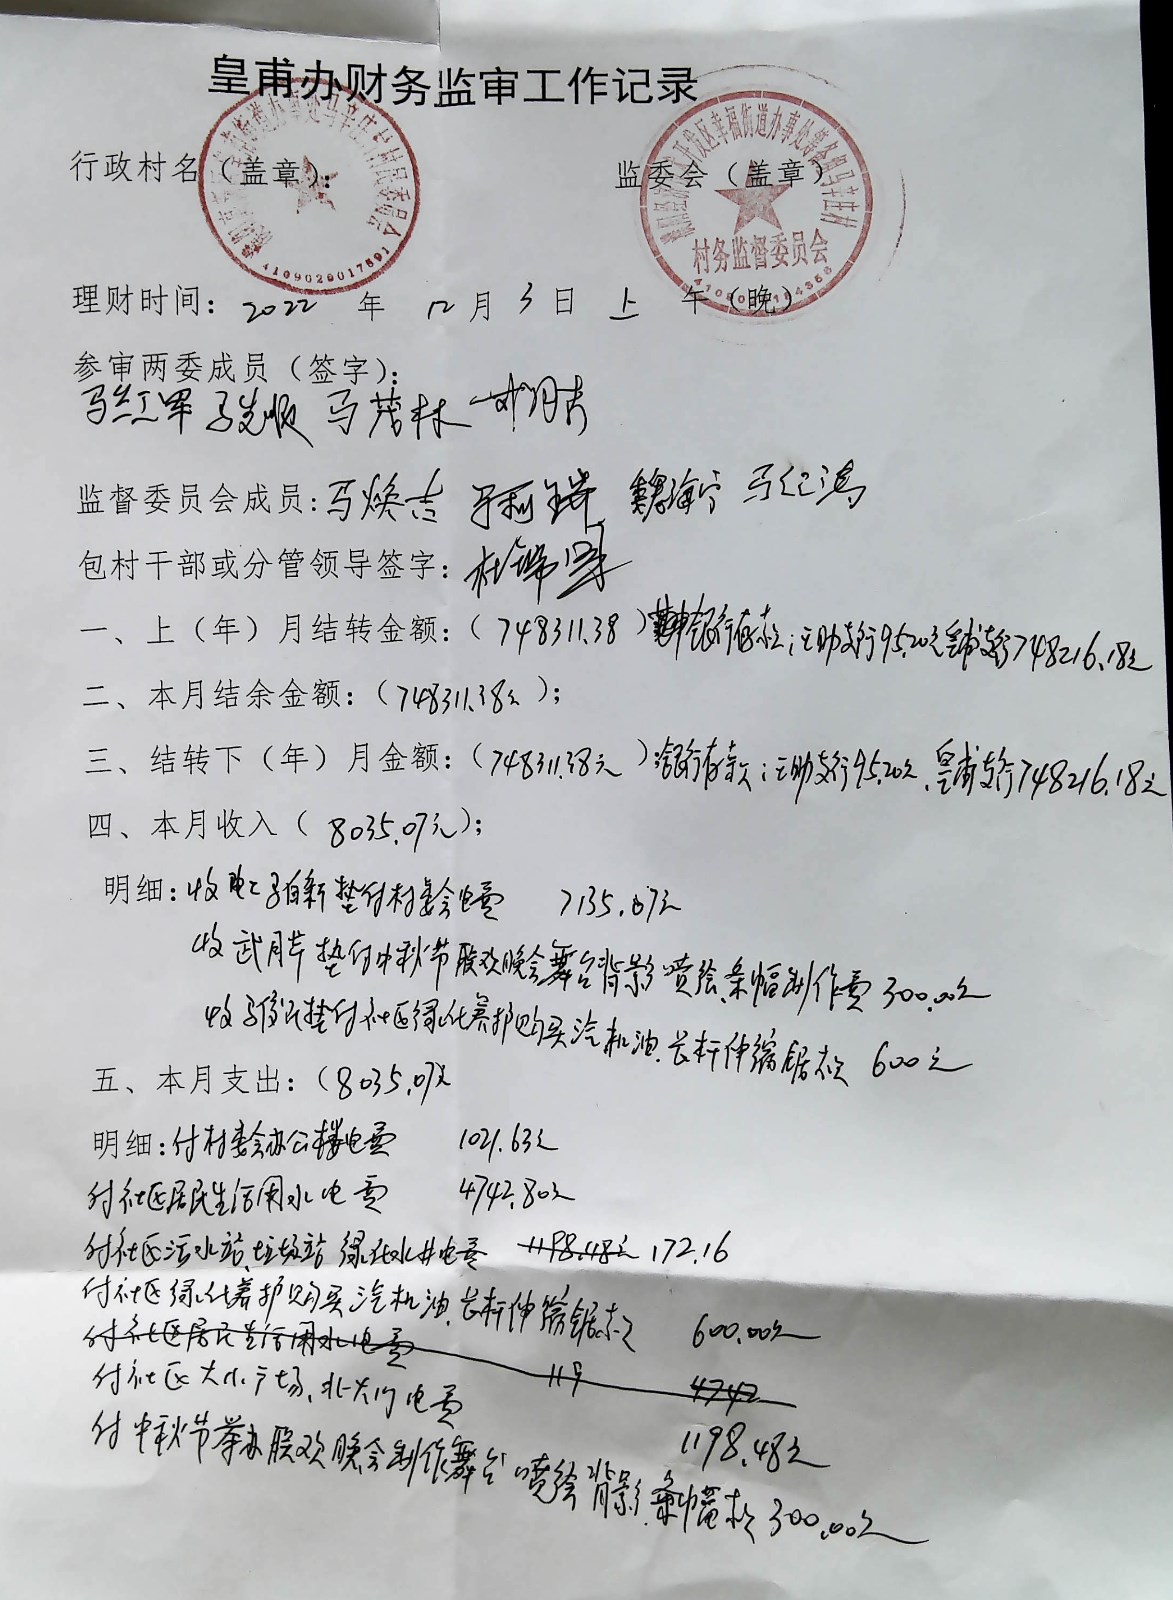 皇甫办财务监审工作记录
行政村名（盖章）：
监委会（盖章）
村务监督委员会
4109020017591
理财时间：2022 年 12月 3日 上 午（晚）
参审两委成员（签字）：
马红军 马茂林
监督委员会成员：马焕吉 马利锋 魏海宁 马纪鸿
包村干部或分管领导签字：杜瑞
一、上（年）月结转金额：（748311.38）银行存款；互助支行95.20元皇甫支行748216.18元
二、本月结余金额：（748311.38元）；
三、结转下（年）月金额：（748311.38元）银行存款；互助支行95.20元、皇甫支行748216.18元
四、本月收入（8035.07元）；
明细：收电工马自新垫付村委会电费 7135.07元
收武月芹垫付中秋节联欢晚会舞台背影喷绘、条幅制作费 300.00元
收 垫付社区绿化养护购买汽机油、长杆伸缩锯款 600元
五、本月支出：（8035.07元
明细：付村委会办公楼电费 1021.63元
付社区居民生活用水电费 4742.80元
付社区污水站、垃圾站 绿化水井电费 1198.48元 172.16
付社区绿化养护购买汽机油、长杆伸缩锯款 600.00元
付社区居民生活用水电费 119 4742
付社区大小广场、北大门电费 1198.48元
付中秋节举办联欢晚会制作舞台喷绘背影、条幅款 300.00元